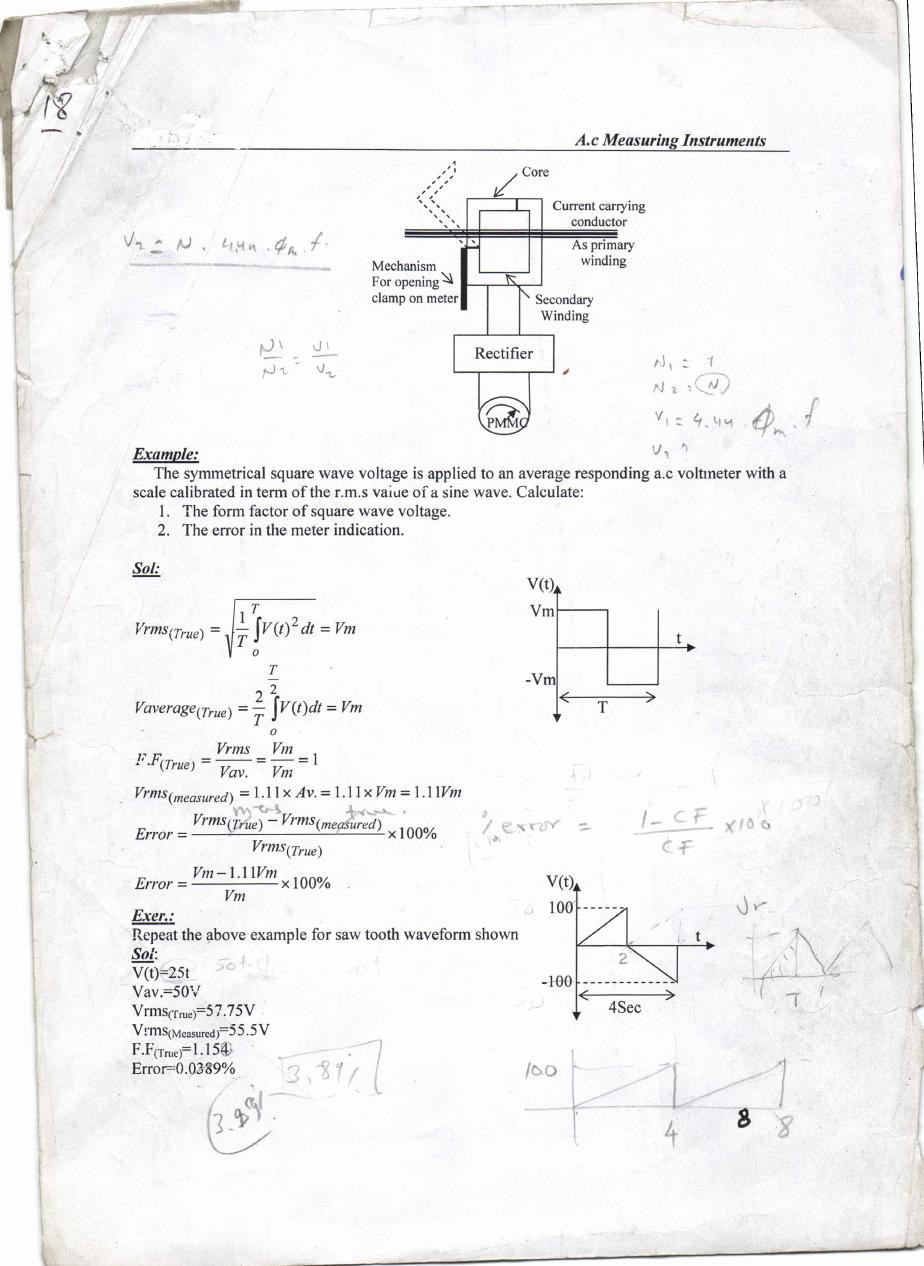 18
A.c Measuring Instruments
Core
Current carrying
conductor
As primary
winding
V2 = N . 4.44 . Φm . f.
Mechanism
For opening
clamp on meter
Secondary
Winding
Rectifier
N1/N2 = V1/V2
N1 = 1
N2 = N
V1 = 4.44 . Φm . f
V2 ?
PMMC
Example:
The symmetrical square wave voltage is applied to an average responding a.c voltmeter with a
scale calibrated in term of the r.m.s value of a sine wave. Calculate:
1. The form factor of square wave voltage.
2. The error in the meter indication.
Sol:
V(t)
Vm
t
-Vm
T
Vrms(True) = √(1/T ∫o^T V(t)² dt) = Vm
Vaverage(True) = 2/T ∫o^(T/2) V(t)dt = Vm
F.F(True) = Vrms/Vav. = Vm/Vm = 1
Vrms(measured) = 1.11× Av. = 1.11× Vm = 1.11Vm
meas true.
Error = (Vrms(True) − Vrms(measured))/Vrms(True) ×100%
% error = (1 - CF)/CF ×100
×100
Error = (Vm − 1.11Vm)/Vm × 100%
V(t)
100
t
2
-100
4Sec
T
Exer.:
Repeat the above example for saw tooth waveform shown
Sol:
V(t)=25t
Vav.=50V
Vrms(True)=57.75V
Vrms(Measured)=55.5V
F.F(True)=1.154
Error=0.0389%
3.89%
3.89%
100
4
8
8